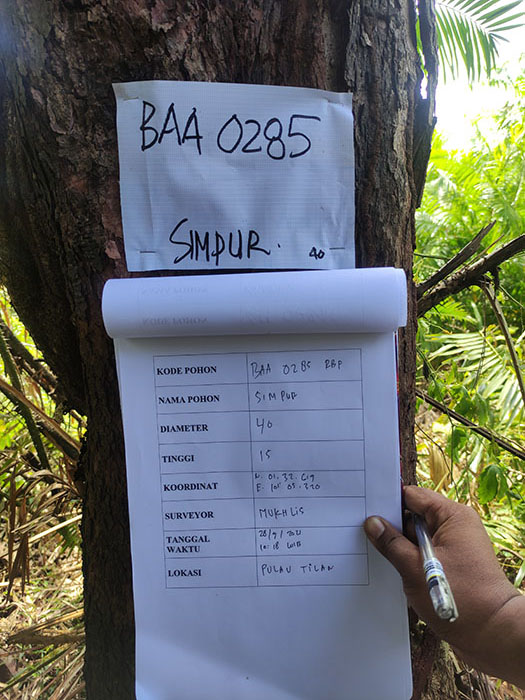 BAA 0285
SIMPUR. 40
KODE POHON BAA 0285 RBP
NAMA POHON SIMPUR
DIAMETER 40
TINGGI 15
KOORDINAT N. 01. 32. 
E. 101. 
SURVEYOR MUKHLIS
TANGGAL
WAKTU
WIB
LOKASI PULAU TILAN